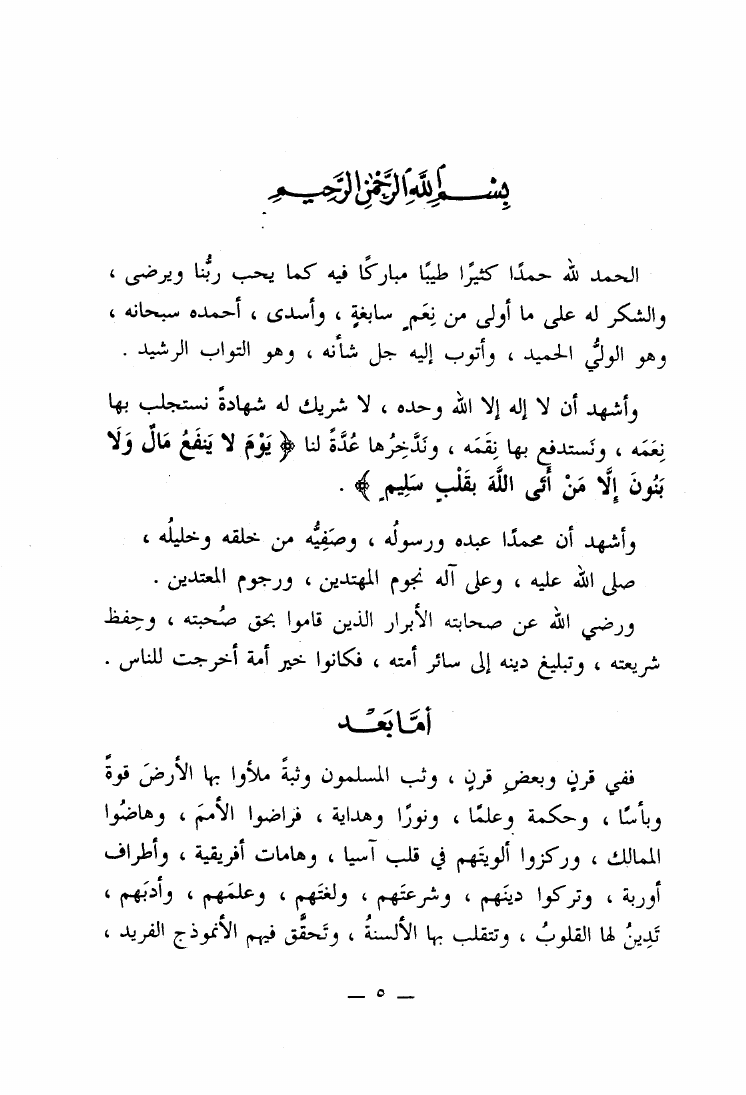 بِسْمِ اللَّهِ الرَّحْمٰنِ الرَّحِيمِ
الحمد لله حمدًا كثيرًا طيبًا مباركًا فيه كما يحب ربُّنا ويرضى ،
والشكر له على ما أولى من نِعَمٍ سابغةٍ ، وأسدى ، أحمده سبحانه ،
وهو الوليُّ الحميد ، وأتوب إليه جل شأنه ، وهو التواب الرشيد .
وأشهد أن لا إله إلا الله وحده ، لا شريك له شهادةً نستجلب بها
نِعَمَه ، ونَستدفع بها نِقَمَه ، ونَدَّخِرُها عُدَّةً لنا ﴿ يَوْمَ لا يَنفَعُ مَالٌ وَلَا
بَنُونَ إِلَّا مَنْ أَتَى اللَّهَ بقَلْبٍ سَلِيمٍ ﴾ .
وأشهد أن محمدًا عبده ورسولُه ، وصَفِيُّه من خلقه وخليلُه ،
صلى الله عليه ، وعلى آله نجوم المهتدين ، ورجوم المعتدين .
ورضي الله عن صحابته الأبرار الذين قاموا بحق صُحبته ، وحِفظ
شريعته ، وتبليغ دينه إلى سائر أمته ، فكانوا خير أمة أخرجت للناس .
أمَّا بَعْد
ففي قرنٍ وبعضِ قرنٍ ، وثب المسلمون وثبةً ملأوا بها الأرضَ قوةً
وبأسًا ، وحكمة وعلمًا ، ونورًا وهداية ، فراضوا الأممَ ، وهاضُوا
الممالك ، وركزوا ألويتَهم في قلب آسيا ، وهامات أفريقية ، وأطراف
أوربة ، وتركوا دينَهم ، وشرعتَهم ، ولغتَهم ، وعلمَهم ، وأدبَهم ،
تَدِينُ لها القلوبُ ، وتتقلب بها الألسنةُ ، وتَحقَّق فيهم الأنموذج الفريد ،
— ٥ —